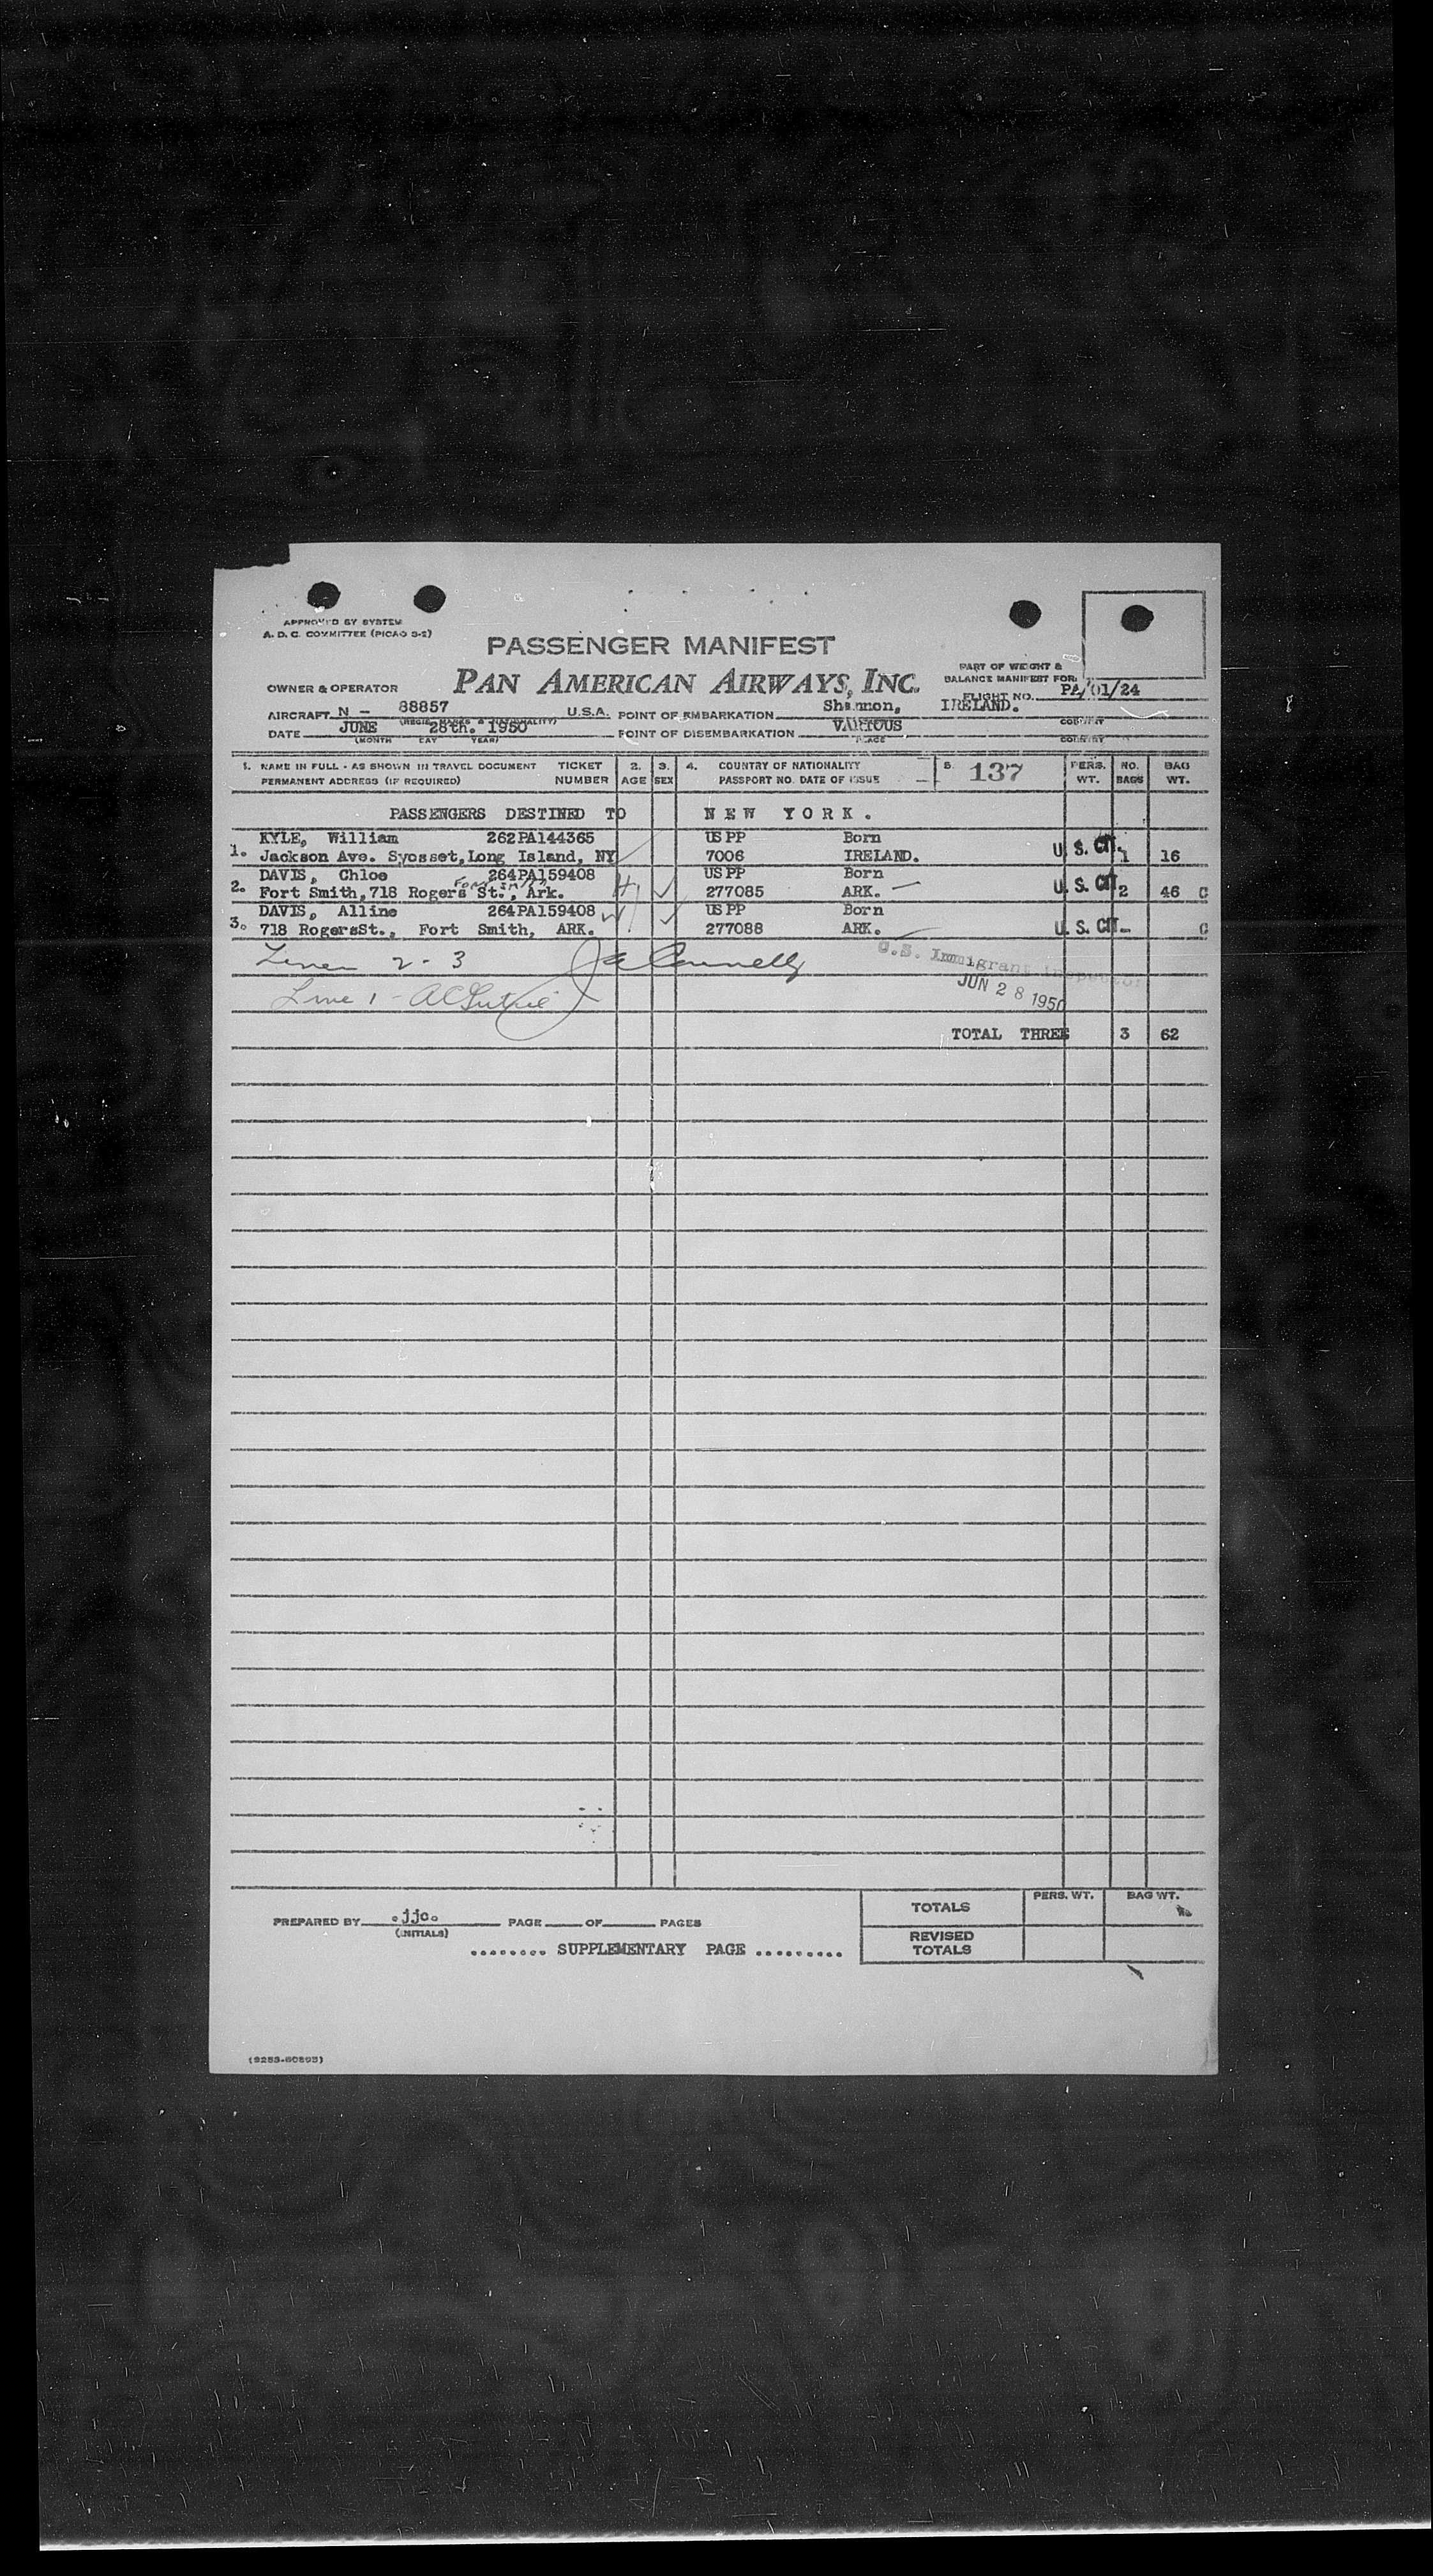 APPROVED BY SYSTEM
A. D. C. COMMITTEE (PICAO S-2)
PASSENGER MANIFEST
PAN AMERICAN AIRWAYS, INC.
PART OF WEIGHT &
BALANCE MANIFEST FOR:
FLIGHT NO. PA/01/24
OWNER & OPERATOR
AIRCRAFT N - 88857 U.S.A. POINT OF EMBARKATION Shannon, IRELAND.
(REGIS. MARKS & NATIONALITY) COUNTRY
DATE JUNE 28th. 1950 POINT OF DISEMBARKATION VARIOUS
(MONTH DAY YEAR) PLACE COUNTRY
1. NAME IN FULL - AS SHOWN IN TRAVEL DOCUMENT TICKET 2. 3. 4. COUNTRY OF NATIONALITY 5. 137 PERS. NO. BAG
PERMANENT ADDRESS (IF REQUIRED) NUMBER AGE SEX PASSPORT NO. DATE OF ISSUE WT. BAGS WT.
PASSENGERS DESTINED TO NEW YORK.
KYLE, William 262PA144365 US PP Born
1. Jackson Ave. Syosset, Long Island, NY 7006 IRELAND. U. S. CIT. 1 16
DAVIS, Chloe 264PA159408 US PP Born
2. Fort Smith, 718 Rogers St., Ark. 277085 ARK. U. S. CIT. 2 46 C
DAVIS, Alline 264PA159408 US PP Born
3. 718 RogersSt., Fort Smith, ARK. 277088 ARK. U. S. CIT. - C
Lines 2 - 3 Connelly U.S. Immigrant Inspector
Line 1 - AC Guthrie JUN 28 1950
TOTAL THREE 3 62
PERS. WT. BAG WT.
TOTALS
PREPARED BY .jjc. PAGE OF PAGES
(INITIALS)
REVISED
TOTALS
........ SUPPLEMENTARY PAGE .........